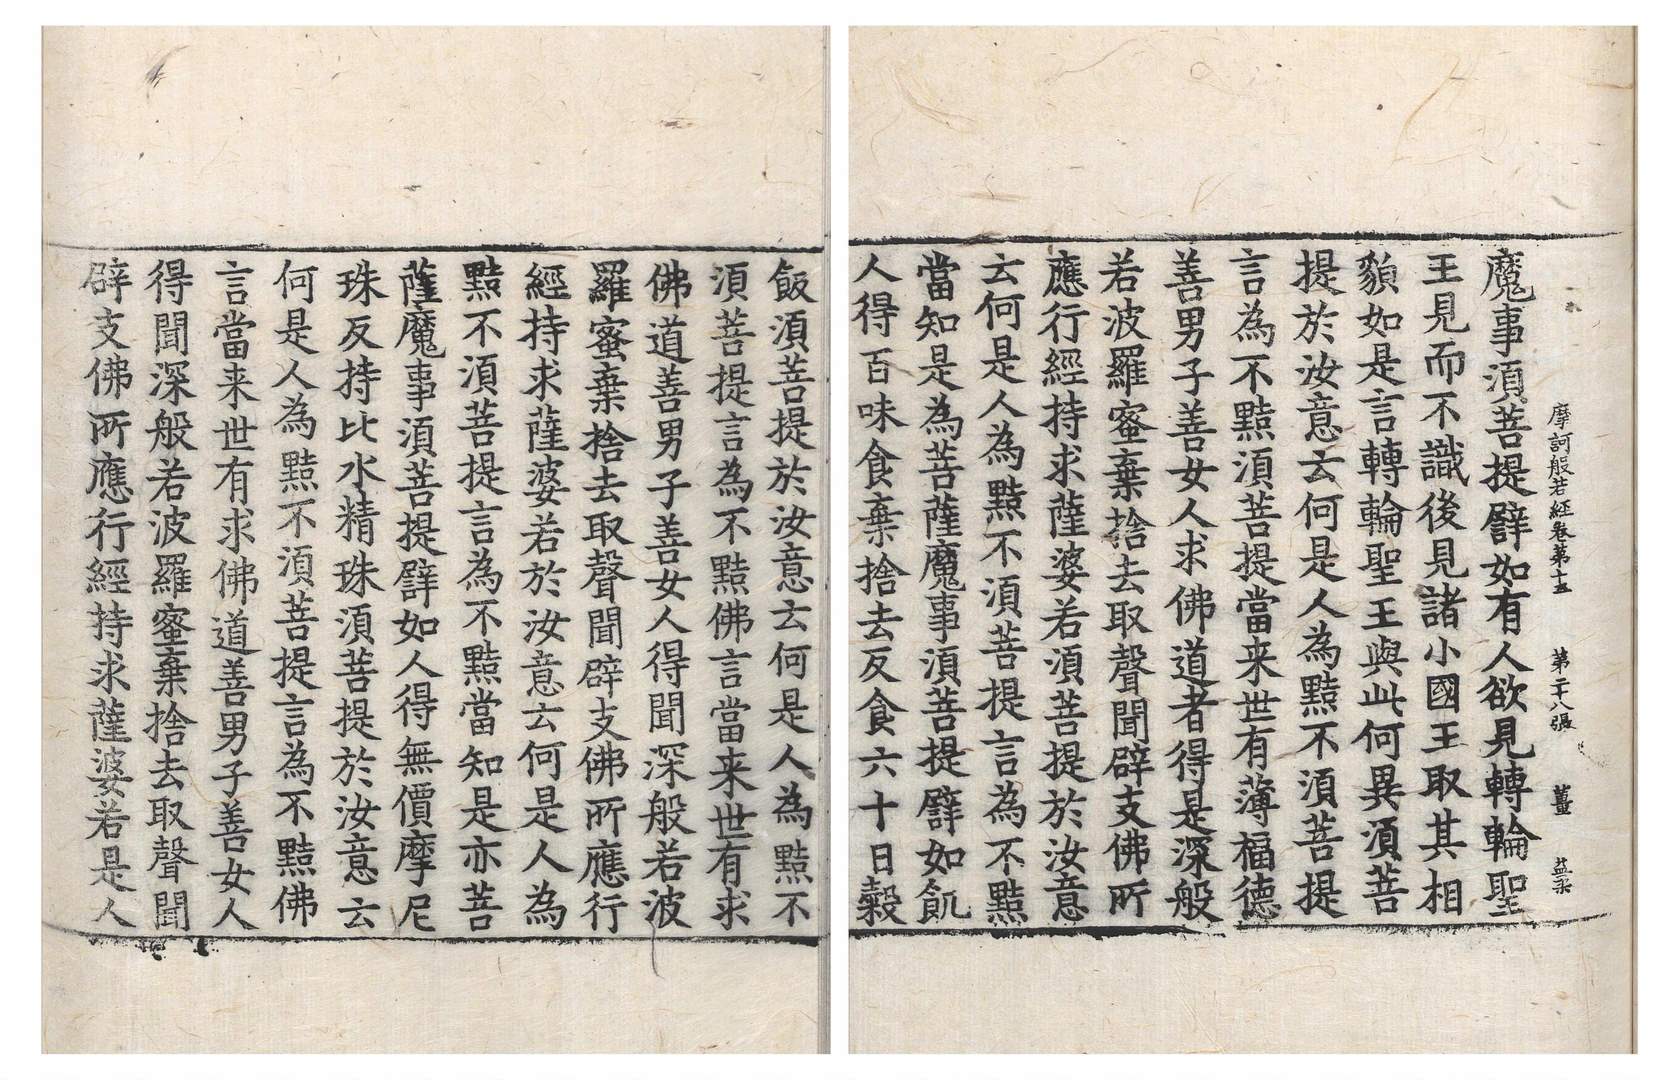 摩訶般若經卷第十五　第二十八張　薑
魔事須菩提譬如有人欲見轉輪聖
王見而不識後見諸小國王取其相
貌如是言轉輪聖王與此何異須菩
提於汝意云何是人為黠不須菩提
言為不黠須菩提當来世有薄福德
善男子善女人求佛道者得是深般
若波羅蜜棄捨去取聲聞辟支佛所
應行經持求薩婆若須菩提於汝意
云何是人為黠不須菩提言為不黠
當知是為菩薩魔事須菩提譬如飢
人得百味食棄捨去反食六十日穀
飯須菩提於汝意云何是人為黠不
須菩提言為不黠佛言當来世有求
佛道善男子善女人得聞深般若波
羅蜜棄捨去取聲聞辟支佛所應行
經持求薩婆若於汝意云何是人為
黠不須菩提言為不黠當知是亦菩
薩魔事須菩提譬如人得無價摩尼
珠反持比水精珠須菩提於汝意云
何是人為黠不須菩提言為不黠佛
言當来世有求佛道善男子善女人
得聞深般若波羅蜜棄捨去取聲聞
辟支佛所應行經持求薩婆若是人